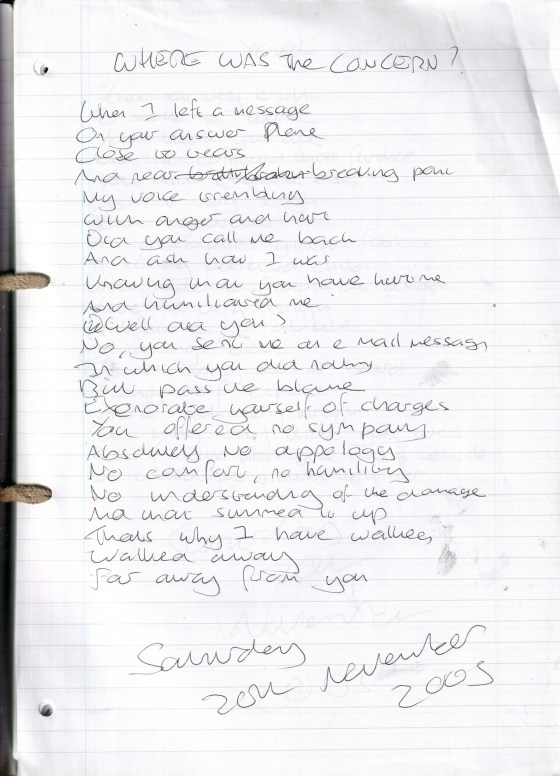 WHERE WAS THE CONCERN?
When I left a message
On your answer Phone
Close to tears
And near breaking point
My voice trembling
With anger and hurt
Did you call me back
And ask how I was
Knowing that you have hurt me
And humiliated me
Well did you?
No, you sent me an e mail message
In which you did nothing
But pass the blame
Exonorate yourself of charges
You offered no sympathy
Absolutely no appology
No comfort, no humility
No understanding of the damage
And that summed it up
Thats why I have walked,
Walked away
Far away from you
Saturday
20th November
2005